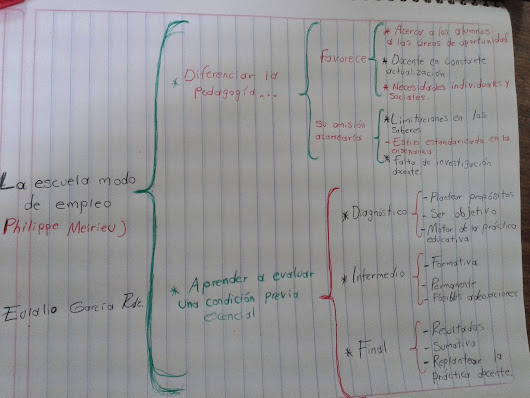 La escuela modo
de empleo
Philippe Meirieu)
Eolalio García Rdz.
* Diferenciar la
pedagogía...
favorece
* Acercar a los alumnos
a las áreas de oportunidad
* Docente en constante
actualización
* Necesidades individuales y
sociales.
Su omisión
* Limitaciones en los
Saberes
- Estilo estandarizado en la
enseñanza
* falta de investigación
docente.
* Aprender a evaluar
una condición previa
escencial
* Diagnóstico
- Plantear propósitos
- Ser objetivo
- Motor de la práctica
educativa
* Intermedio
- Formativa
- Permanente
- Posibles adecuaciones
* Final
- Resultados
- Sumativa
- Replantear la
práctica docente.